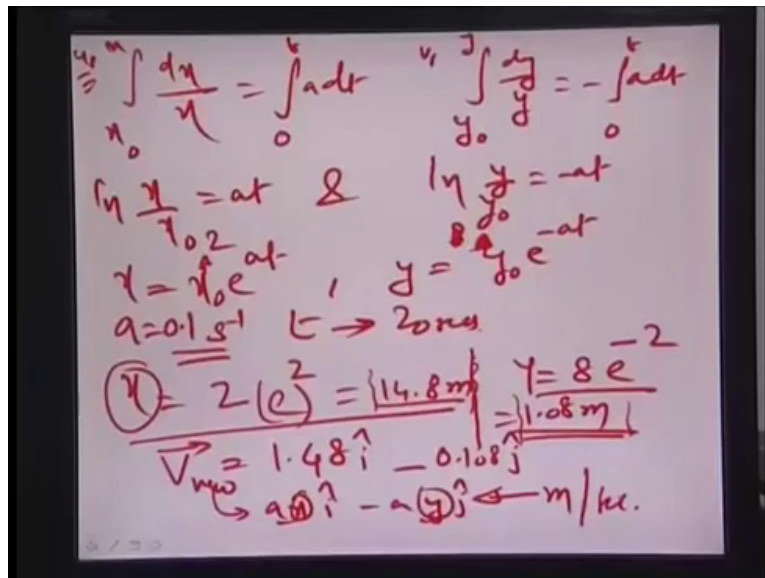 ∫_{x_0}^{x} dx/x = ∫_0^t a dt    ∫_{y_0}^{y} dy/y = - ∫_0^t a dt
ln x/x_0 = at & ln y/y_0 = -at
2 8
x = x_0 e^{at} , y = y_0 e^{-at}
a = 0.1 s^{-1} t → 20 sec.
x = 2 (e)^2 = 14.8 m y = 8 e^{-2}
= 1.08 m
V_new = 1.48 î - 0.108 ĵ
↳ a x î - a y ĵ ← m/sec.